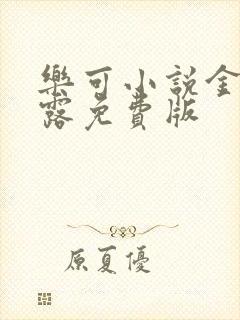 樂可小說金
露免費版
原夏優